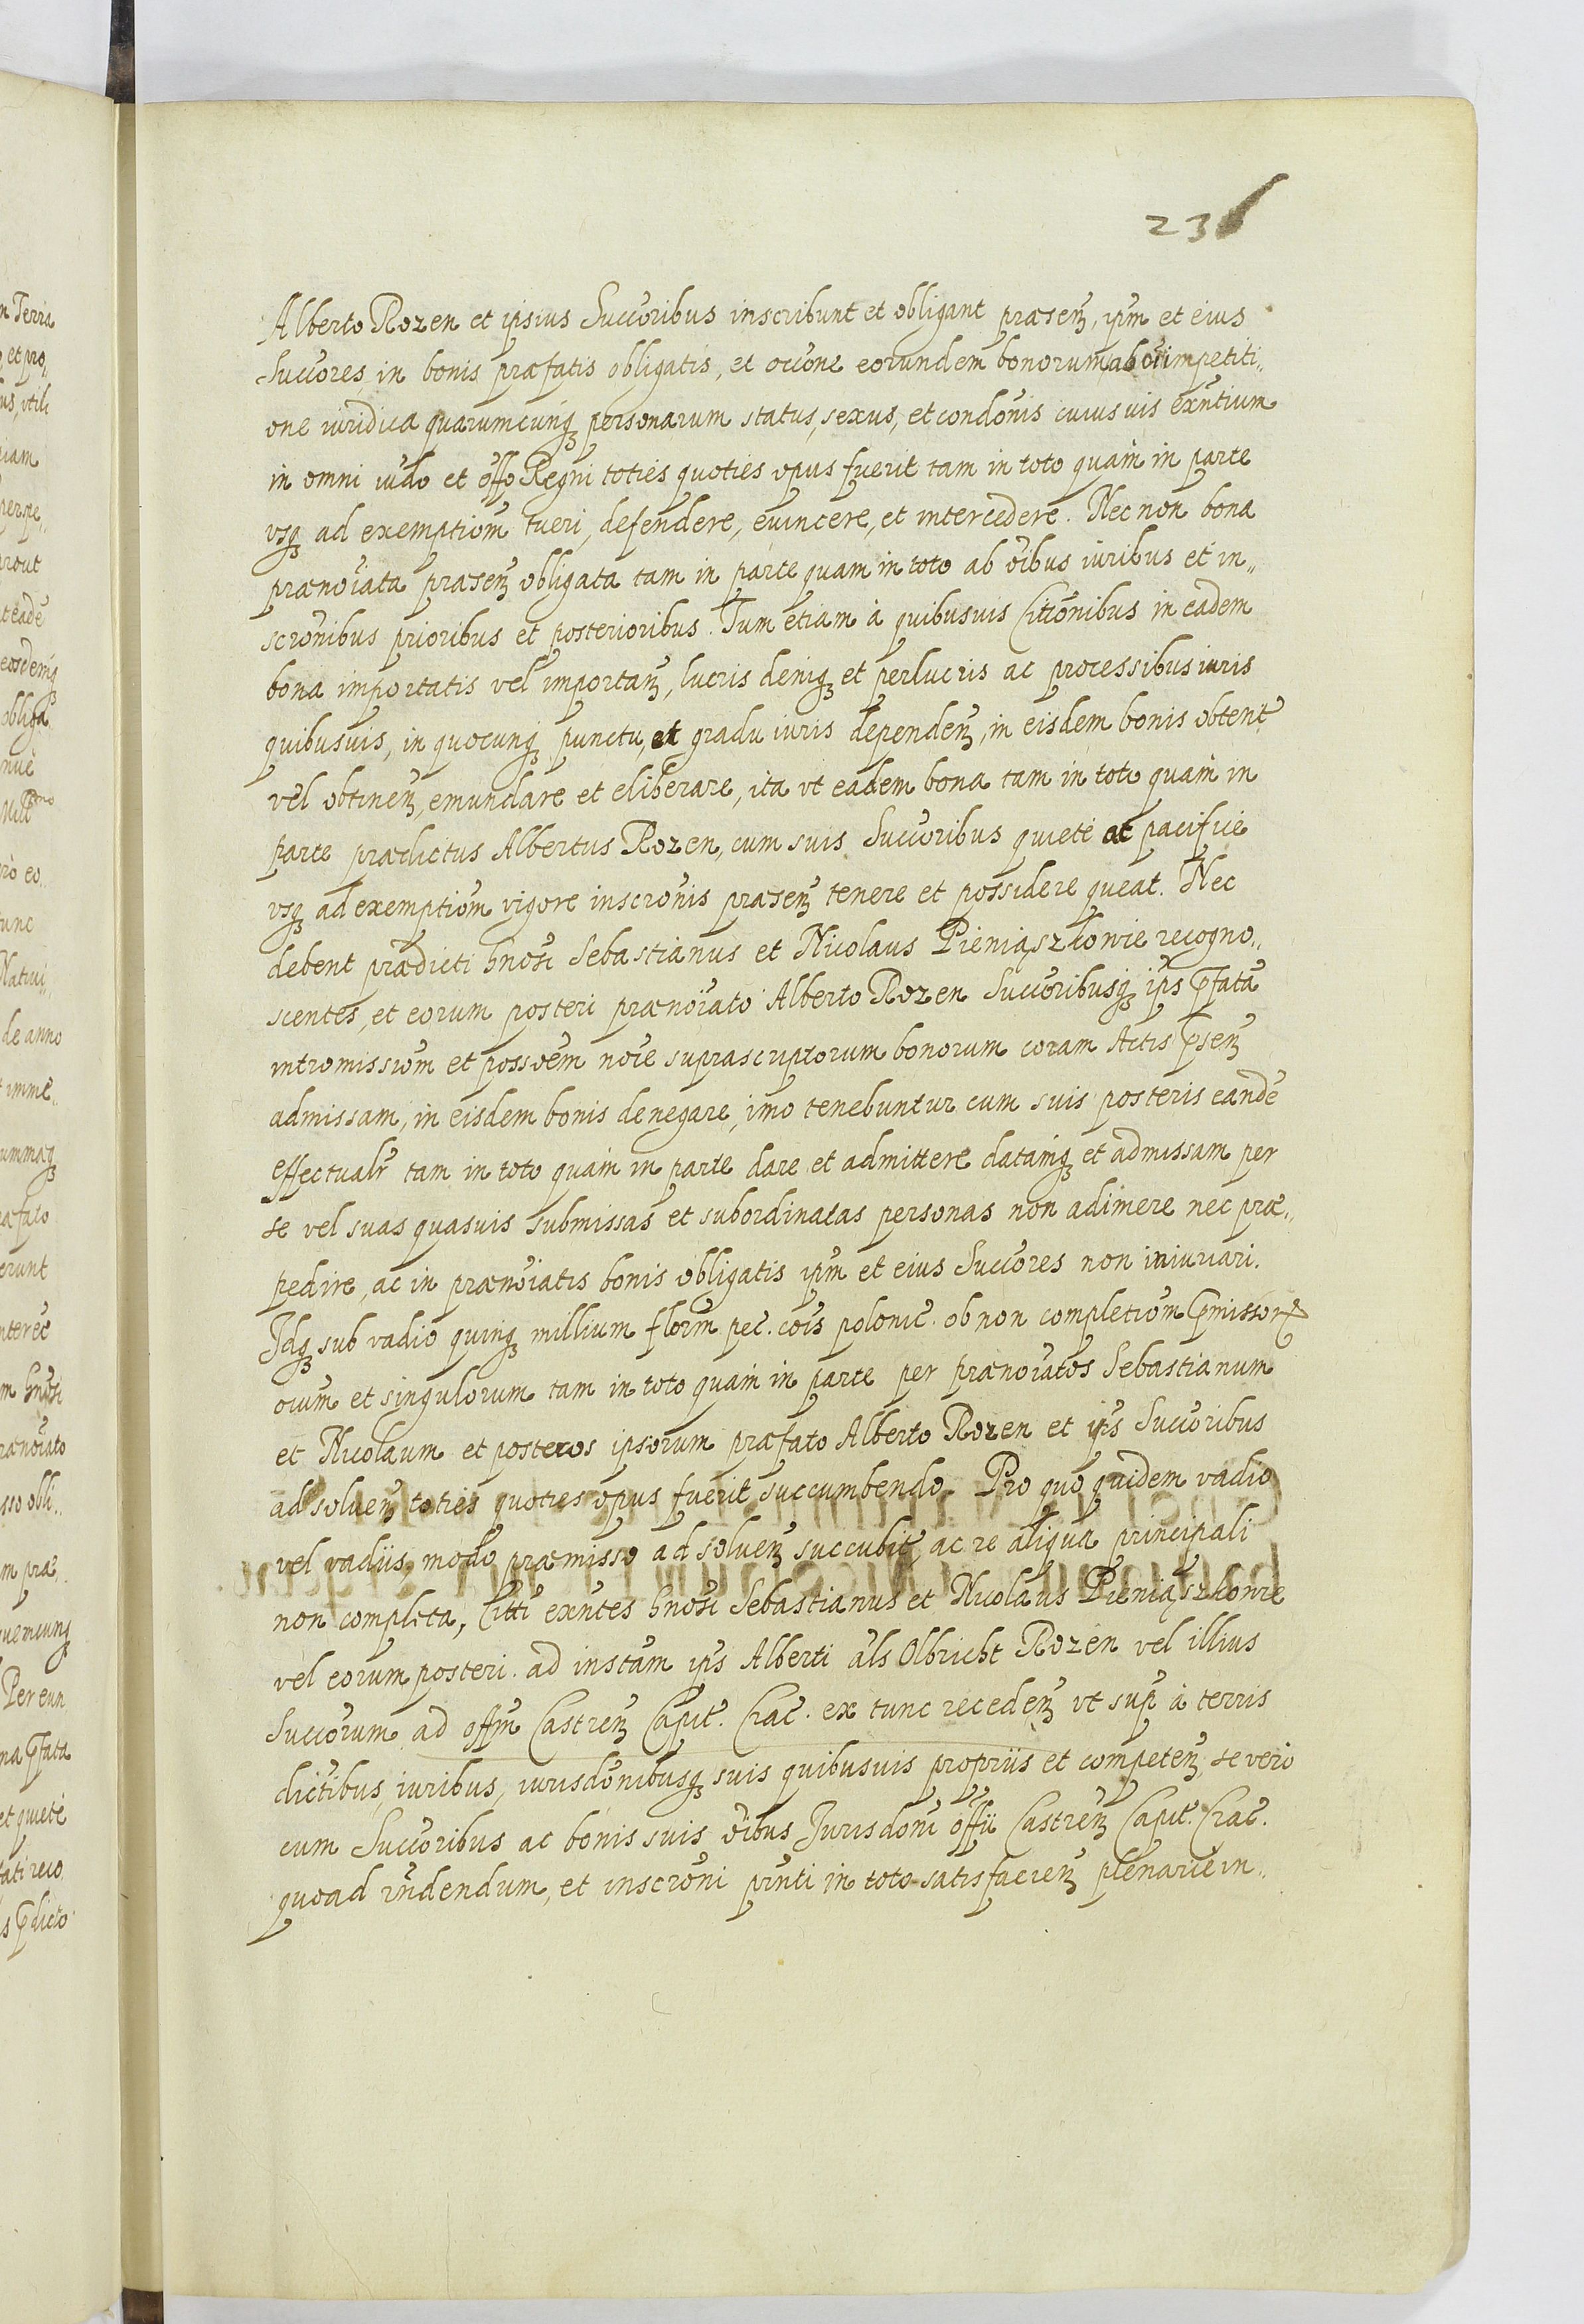 236
Alberto Rozen et ipsius Succõribus inscribunt et obligant præsenꝫ, ipm̃ et eius
Succõres, in bonis præfatis obligatis, et occõne eorundem bonorum ab oi͂ impetiti„
one iuridica quarumcunqꝫ personarum status, sexus, et condõnis cuiusuis exñtium
in omni iud͂o et off͂o Regni toties quoties opus fuerit tam in toto quàm in parte
vsqꝫ ad exemptiõm tueri, defendere, euincere, et intercedere. Nec non bona
prænoi͂ata præsenꝫ obligata tam in parte quam in toto ab oi͂bus iuribus et in„
scrõnibus prioribus et posterioribus. Tum etiam à quibusuis Citiõnibus in eadem
bona importatis vel importanꝫ, lucris deniqꝫ et perlucris ac processibus iuris
quibusuis, in quocunqꝫ punctu, et gradu iuris dependenꝫ, in eisdem bonis obtent͂
vel obtinenꝫ, emundare et eliberare, ita vt eadem bona tam in toto quàm in
parte prædictus Albertus Rozen, cum suis Succõribus quietè ac pacificè
vsqꝫ ad exemptiõm vigore inscrõnis præsenꝫ tenere et possidere queat. Nec
debent prædicti hnõsi Sebastianus et Nicolaus Pieniąszkowie recogno„
scentes, et eorum posteri prænoi͂ato Alberto Rozen Succõribusqꝫ ip̃s p̃fatã
intromissiõm et possõem noi͂e suprascriptorum bonorum coram Actis p̃senꝫ
admissam, in eisdem bonis denegare, imo tenebuntur cum suis posteris eandẽ
effectualr̃ tam in toto quàm in parte dare et admittere datamqꝫ et admissam per
se vel suas quasuis submissas et subordinatas personas non adimere nec præ„
pedire, ac in prænoi͂atis bonis obligatis ipm̃ et eius Succõres non iniuriari.
Idqꝫ sub vadio quinqꝫ millium flor̃m pec. cõis polonic̃. ob non completiõm p̃missorꝝ
oi͂um et singulorum tam in toto quàm in parte per prænoi͂atos Sebastianum
et Nicolaum et posteros ipsorum præfato Alberto Rozen et ip̃s Succõribus
ad soluenꝫ toties quoties opus fuerit succumbendo. Pro quo quidem vadio
vel vadiis, modo præmisso ad soluenꝫ succubit͂, ac re aliqua principali
non completa, Citt͂i exñtes hnõsi Sebastianus et Nicolaus Pieniąszkowie
vel eorum posteri. ad instãm ip̃s Alberti als̃ Olbricht Rozen vel illius
Succõrum ad off͂m Castrenꝫ Capit̃. Crac̃. ex tunc recedenꝫ vt sup̃ à terris
dictibus, iuribus, iurisdõnibusqꝫ suis quibusuis propriis et competenꝫ, se verò
cum Succõribus ac bonis suis oi͂bus Jurisdõni off͂ii Castrenꝫ Capit̃. Crac̃.
quoad rñdendum, et inscrõni prñti in toto satisfacienꝫ plenariè in„